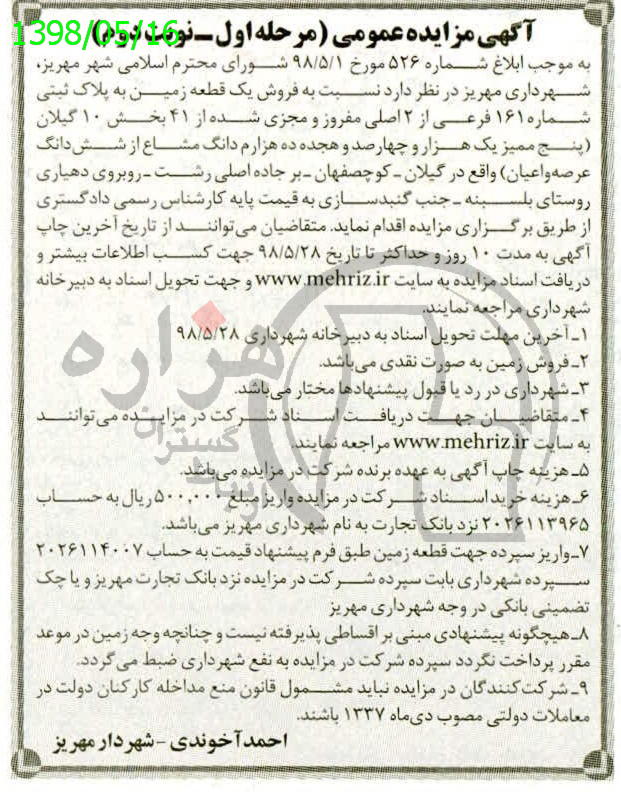 1398/05/16
آگهی مزایده عمومی (مرحله اول ــ نوبت دوم)
به موجب ابلاغ شماره ۵۲۶ مورخ ۹۸/۵/۱ شورای محترم اسلامی شهر مهریز،
شهرداری مهریز در نظر دارد نسبت به فروش یک قطعه زمین به پلاک ثبتی
شماره ۱۶۱ فرعی از ۲ اصلی مفروز و مجزی شده از ۴۱ بخش ۱۰ گیلان
(پنج ممیز یک هزار و چهارصد و هجده ده هزارم دانگ مشاع از شش‌دانگ
عرصه واعیان) واقع در گیلان ـ کوچصفهان ـ بر جاده اصلی رشت ـ روبروی دهیاری
روستای بلسبنه ـ جنب گنبدسازی به قیمت پایه کارشناس رسمی دادگستری
از طریق برگزاری مزایده اقدام نماید. متقاضیان می‌توانند از تاریخ آخرین چاپ
آگهی به مدت ۱۰ روز و حداکثر تا تاریخ ۹۸/۵/۲۸ جهت کسب اطلاعات بیشتر و
دریافت اسناد مزایده به سایت www.mehriz.ir و جهت تحویل اسناد به دبیرخانه
شهرداری مراجعه نمایند.
۱ـ آخرین مهلت تحویل اسناد به دبیرخانه شهرداری ۹۸/۵/۲۸
۲ـ فروش زمین به صورت نقدی می‌باشد.
۳ـ شهرداری در رد یا قبول پیشنهادها مختار می‌باشد.
۴ـ متقاضیان جهت دریافت اسناد شرکت در مزایده می‌توانند
به سایت www.mehriz.ir مراجعه نمایند.
۵ـ هزینه چاپ آگهی به عهده برنده شرکت در مزایده می‌باشد.
۶ـ هزینه خرید اسناد شرکت در مزایده واریز مبلغ ۵۰۰,۰۰۰ ریال به حساب
۲۰۲۶۱۱۳۹۶۵ نزد بانک تجارت به نام شهرداری مهریز می‌باشد.
۷ـ واریز سپرده جهت قطعه زمین طبق فرم پیشنهاد قیمت به حساب ۲۰۲۶۱۱۴۰۰۷
سپرده شهرداری بابت سپرده شرکت در مزایده نزد بانک تجارت مهریز و یا چک
تضمینی بانکی در وجه شهرداری مهریز
۸ـ هیچگونه پیشنهادی مبنی بر اقساطی پذیرفته نیست و چنانچه وجه زمین در موعد
مقرر پرداخت نگردد سپرده شرکت در مزایده به نفع شهرداری ضبط می‌گردد.
۹ـ شرکت‌کنندگان در مزایده نباید مشمول قانون منع مداخله کارکنان دولت در
معاملات دولتی مصوب دی‌ماه ۱۳۳۷ باشند.
احمد آخوندی - شهردار مهریز
هزاره
گستران